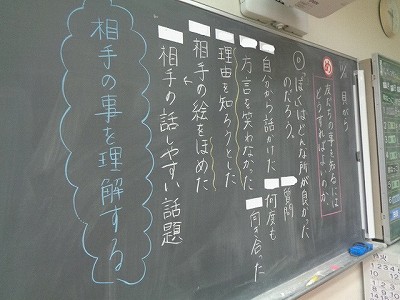 貝がら
め 友だちの事を知るには
どうすればよいのか。
「ぼく」はどんな所が良かった
のだろう。
自分から話かけた
質問
方言を笑わなかった
何度も
向き合った
理由を知ろうとした
相手の絵をほめた
相手の話しやすい話題
相手の事を理解する